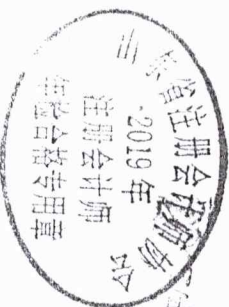 东省注册会计师协会
2019年
注册会计师
年检合格专用章